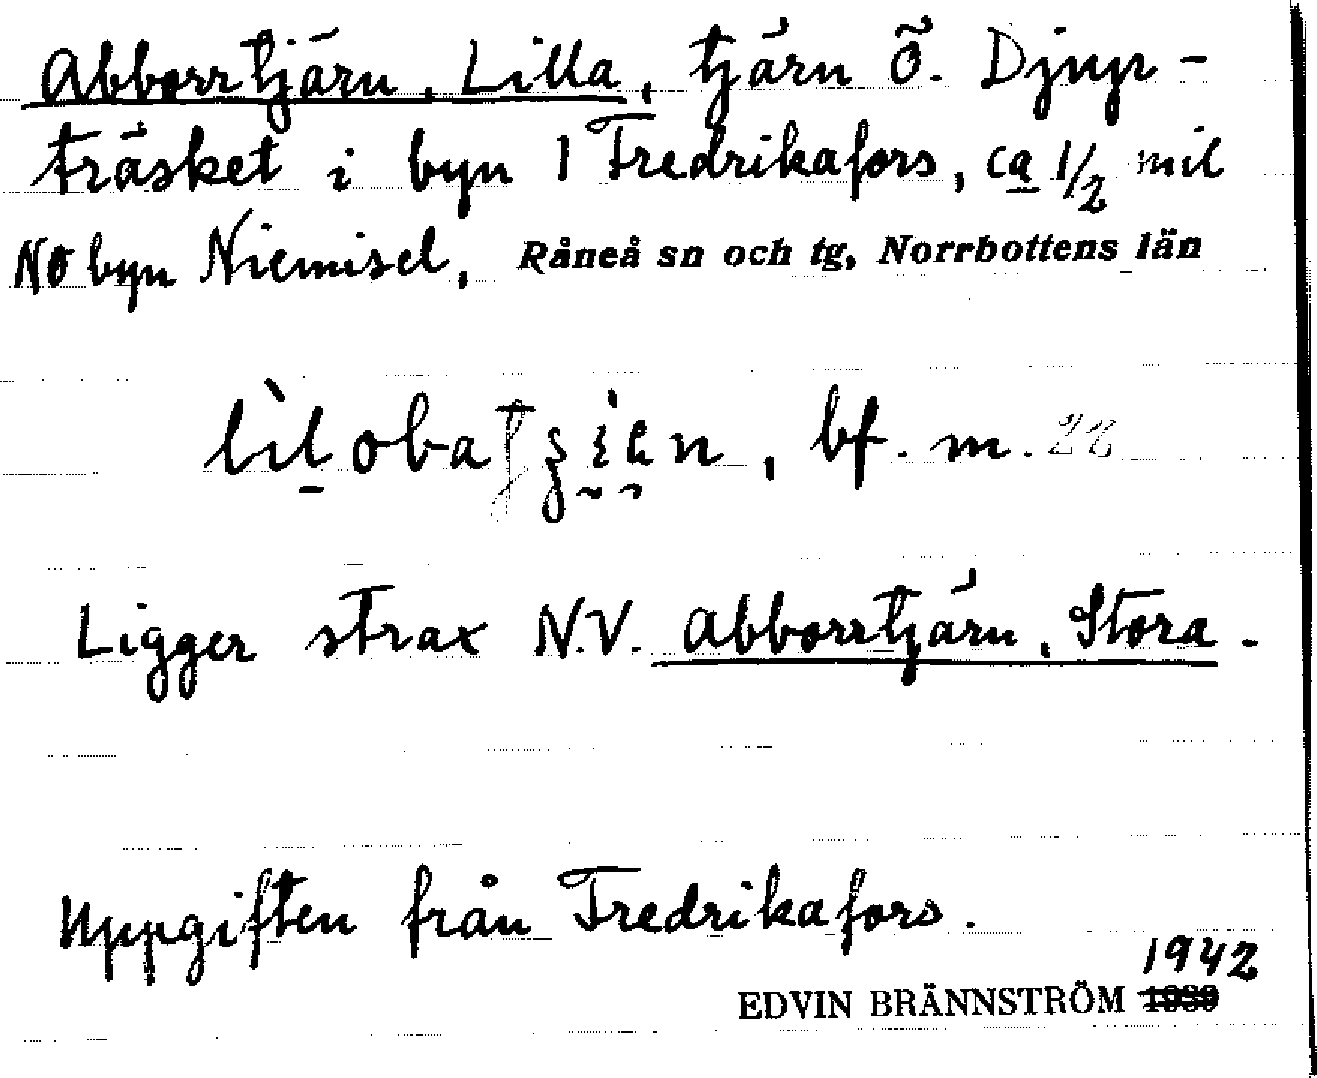 Abborrtjärn, Lilla, tjärn Ö. Djupträsket i byn 1 Fredrikafors, ca 1/2 mil
NO byn Niemisel, Råneå sn och tg, Norrbottens län
bf. m.
Ligger strax N.V. Abborrtjärn, Stora.
Uppgiften från Fredrikafors.
1942
EDVIN BRÄNNSTRÖM 1939